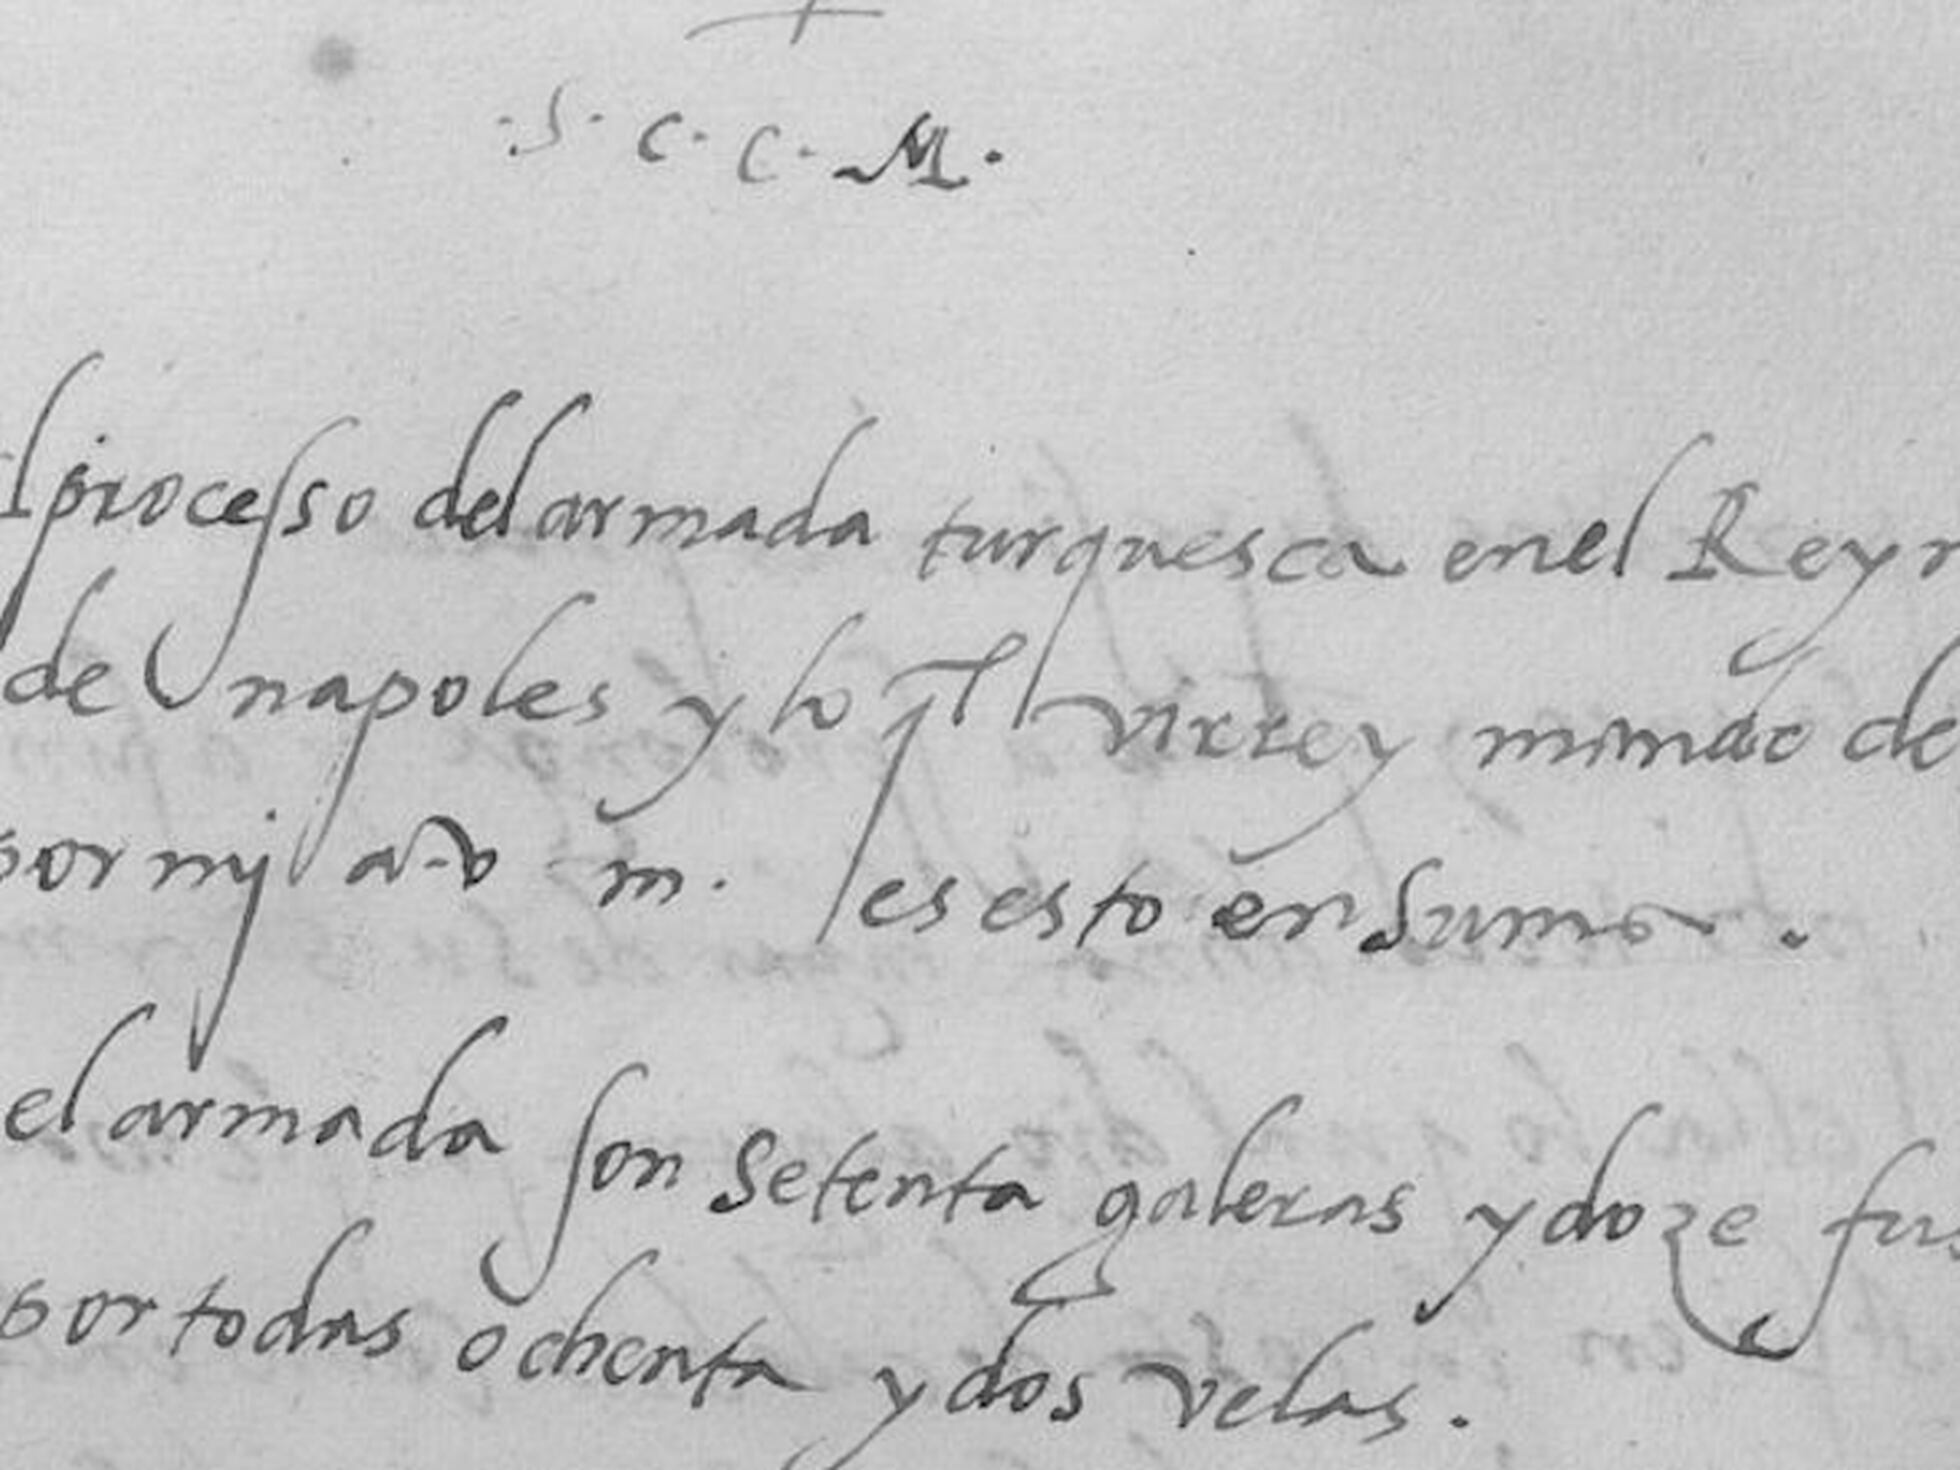 .S. C. C. M.
el processo del armada turquesca enel Reyn
de napoles y lo q̃l virrey mimado de
por mj a v m. es esto en suma.
el armada son setenta galeras y doze fus
por todas ochenta y dos velas.